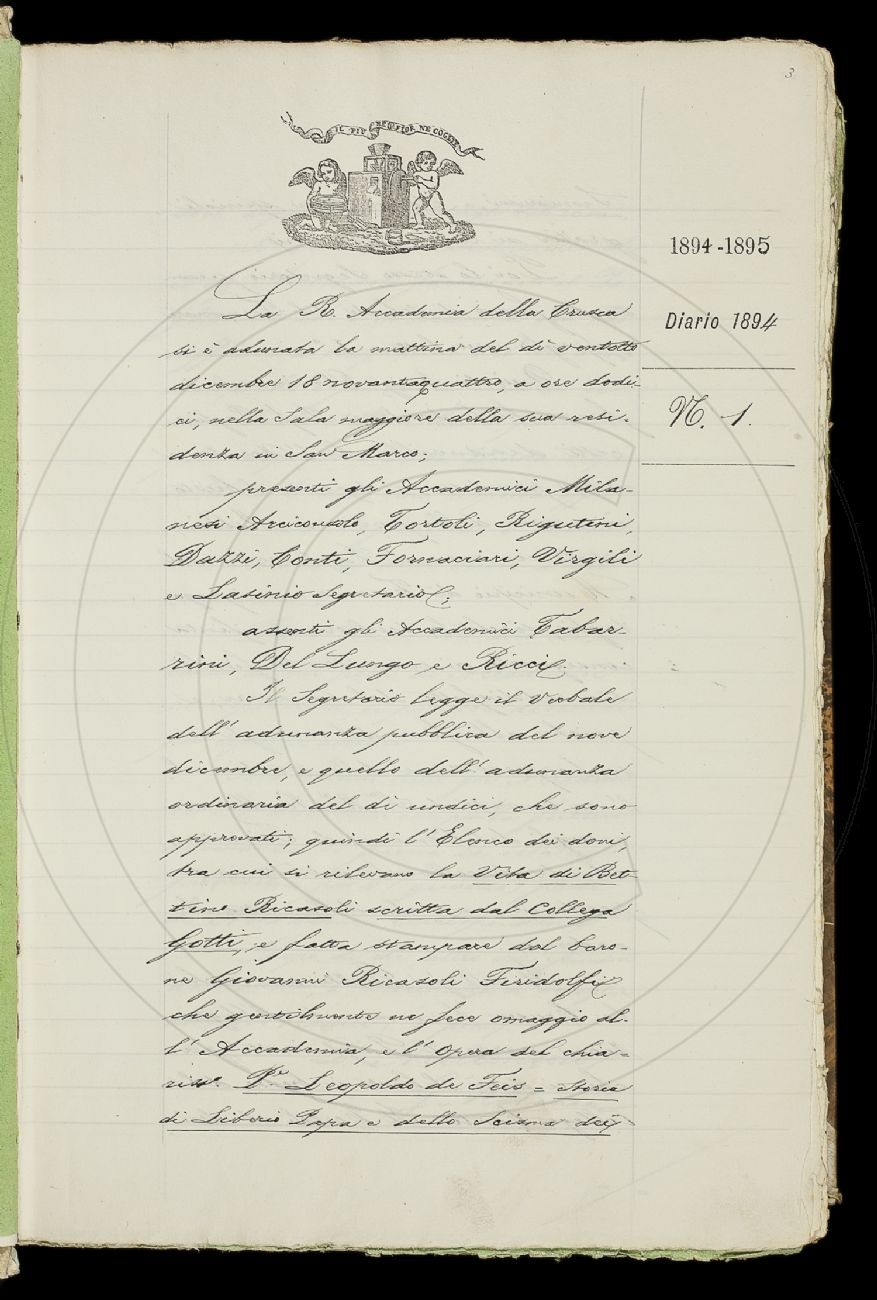 3
IL PIÙ BEL FIOR NE COGLIE
1894-1895
Diario 1894
N. 1.
La R. Accademia della Crusca
si è adunata la mattina del dì ventotto
dicembre 18novantaquattro, a ore dodi-
ci, nella Sala maggiore della sua resi-
denza in San Marco;
presenti gli Accademici Mila-
nesi Arciconsolo, Tortoli, Rigutini,
Dazzi, Conti, Fornaciari, Virgili
e Lasinio Segretario;
assenti gli Accademici Tabar-
rini, Del Lungo e Ricci.
Il Segretario legge il Verbale
dell'adunanza pubblica del nove
dicembre, e quello dell'adunanza
ordinaria del dì undici, che sono
approvati; quindi l'Elenco dei doni,
tra cui si rilevano la Vita di Bet-
tino Ricasoli scritta dal Collega
Gotti, e fatta stampare dal baro-
ne Giovanni Ricasoli Firidolfi
che gentilmente ne fece omaggio al-
l'Accademia, e l'Opera del chia-
riss.º P.e Leopoldo de Feis = Storia
di Liberio Papa e dello Scisma dei